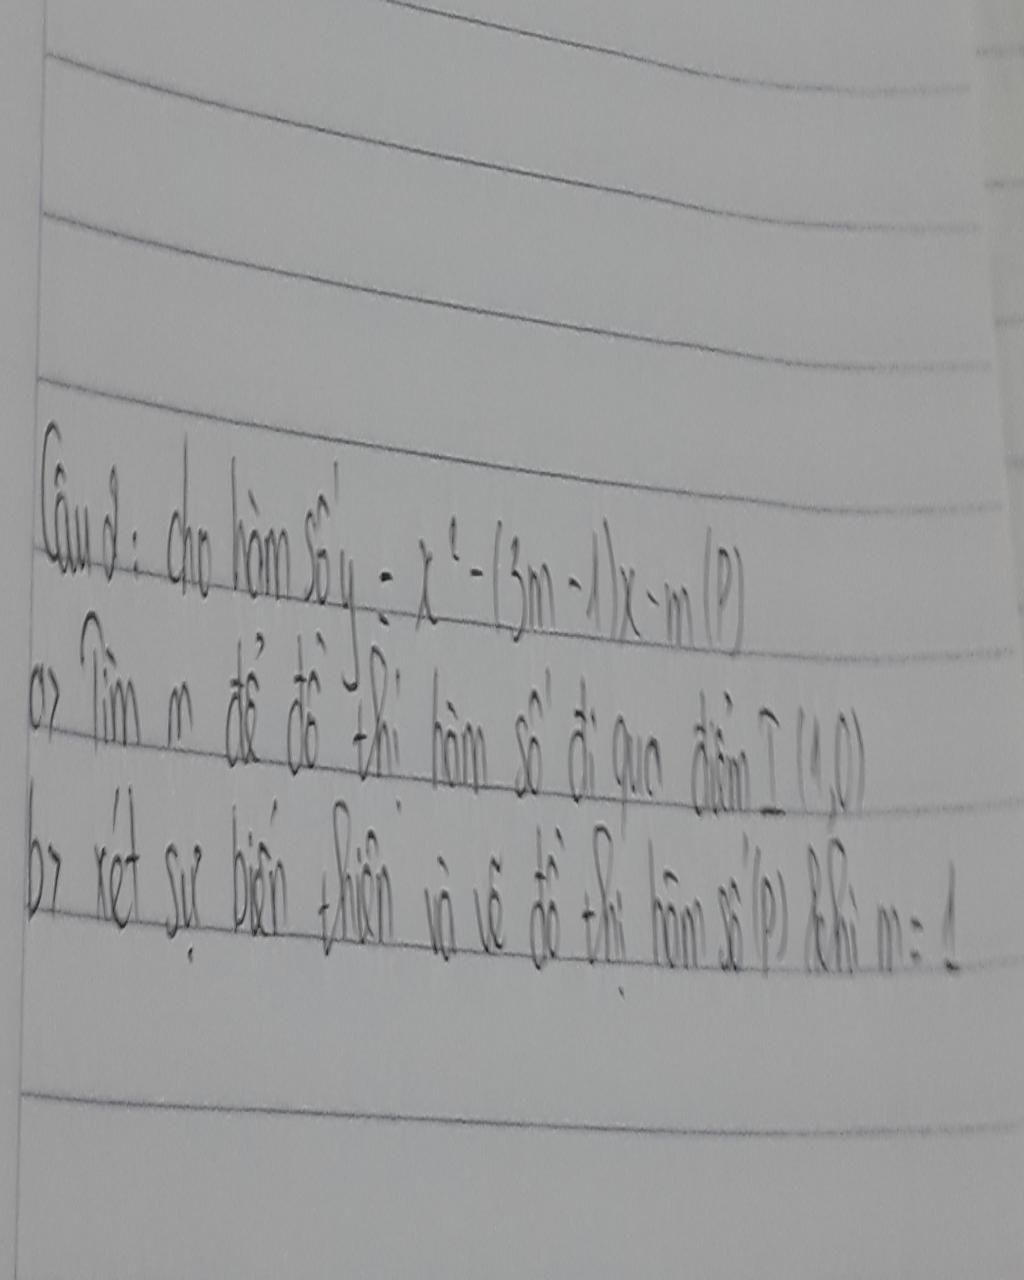 Câu 2: cho hàm số y = x² - (3m - 1)x - m (P)
a> Tìm m để đồ thị hàm số đi qua điểm I (1,0)
b> xét sự biến thiên và vẽ đồ thị hàm số (P) khi m = 1